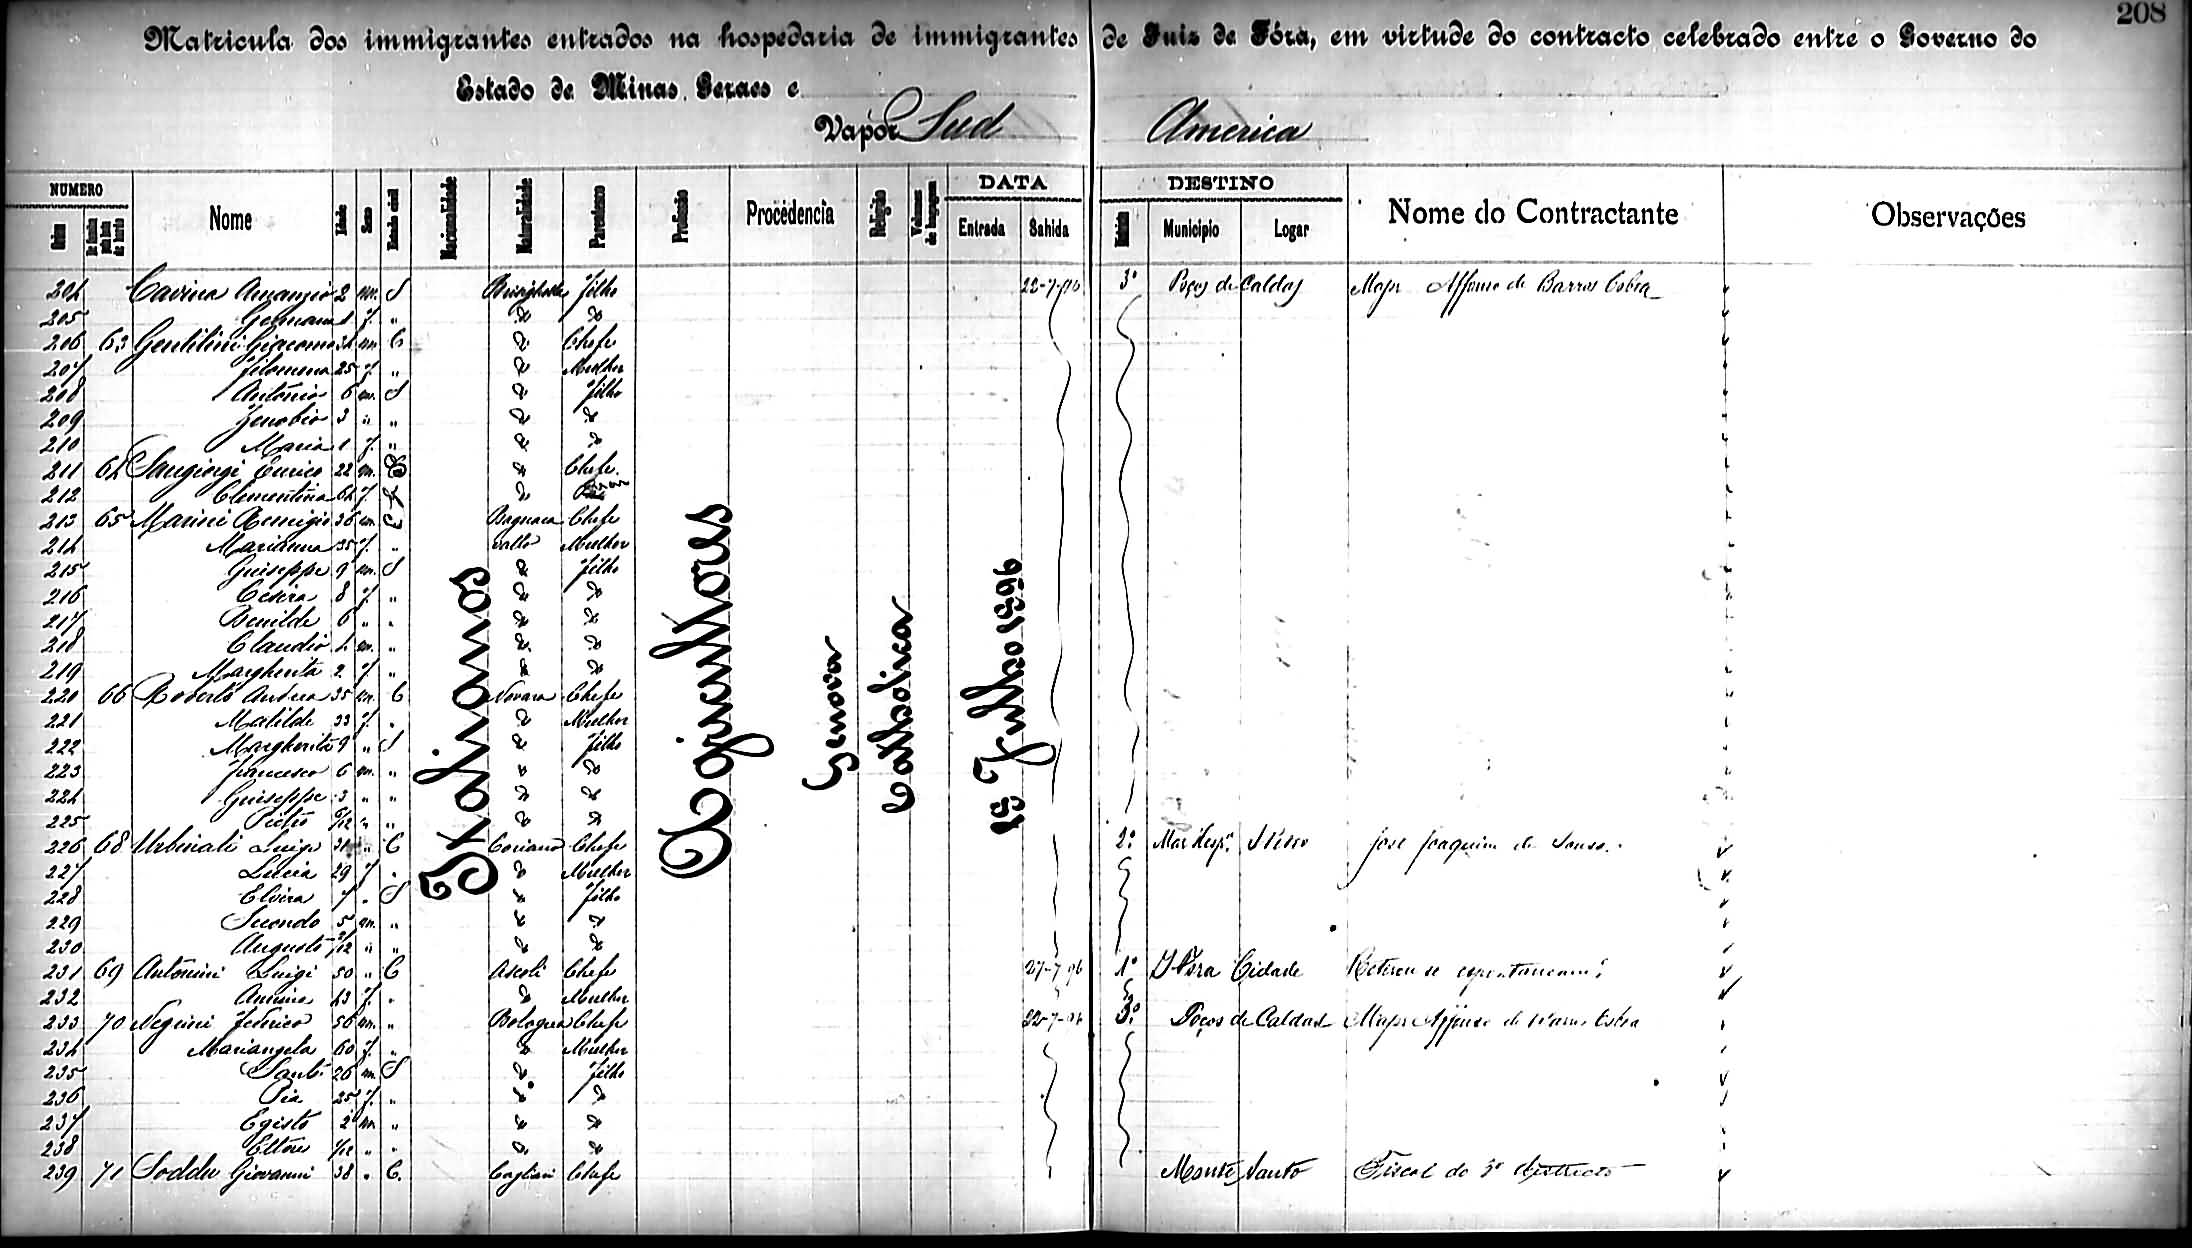 208
Matricula dos immigrantes entrados na hospedaria de immigrantes de Juiz de Fóra, em virtude do contracto celebrado entre o Governo do
Estado de Minas Geraes e
Vapor Sud America
NUMERO Nome Idade Sexo Estado civil Nacionalidade Naturalidade Parentesco Profissão Procedencia Religião Volumes de bagagem DATA DESTINO Nome do Contractante Observações
Ordem Entrada Sahida Municipio Logar
Italianos Agricultores Genova Catholica 15 Julho 1896
204 Cavina Amanzio 2 m. S Filho 22-7-96 3º Poços de Caldas Major Affonso de Barros Cobra
205 Germana 1 f. "
206 63 Gentilini Giacomo 34 m C Chefe
207 Filomena 25 f. " Mulher
208 Antonio 6 m. S Filho
209 Zenobio 3 " "
210 Maria 1 f. "
211 64 Sangiorgi Enrico 22 m. Chefe
212 Clementina 64 f.
213 65 Marini Remigio 36 m C Bagnaca Chefe
214 Marianna 35 f. " vallo Mulher
215 Guiseppe 9 m. S Filho
216 Cesira 8 f. "
217 Benilde 6 " "
218 Claudio 4 m. "
219 Margherita 2 f "
220 66 Roberto Andrea 35 m. C Novara Chefe
221 Matilde 33 f. " Mulher
222 Margherita 9 " S Filho
223 Francesco 6 m. "
224 Guiseppe 3 " "
225 Pietro 6/12 " "
226 68 Urbinati Luigi 31 " C Coriano Chefe 2º Mar Hespª José Joaquim de Souza
227 Lucia 29 f " Mulher
228 Elvira 7 " S Filho
229 Secondo 5 m. "
230 Augusto /12 " "
231 69 Antonini Luigi 50 " C Ascoli Chefe 27-7-96 1º J Fóra Cidade Retirou se espontaneamº
232 Annina 43 f. " Mulher
233 70 Negrini Federico 56 m. " Bologna Chefe 22-7-96 3º Poços de Caldas Major Affonso de Barros Cobra
234 Mariangela 60 f. " Mulher
235 Santo 26 m. S Filho
236 Pia 25 f. "
237 Egisto 2 m "
238 Ettore 1/12 " "
239 71 Soddu Giovanni 38 " C. Cagliari Chefe Monte Santo Fiscal do 3º districto